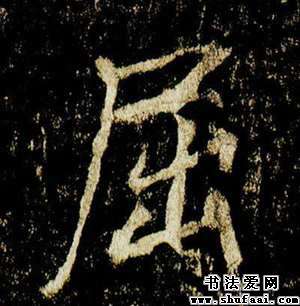 屈
书法爱网
www.shufaai.com